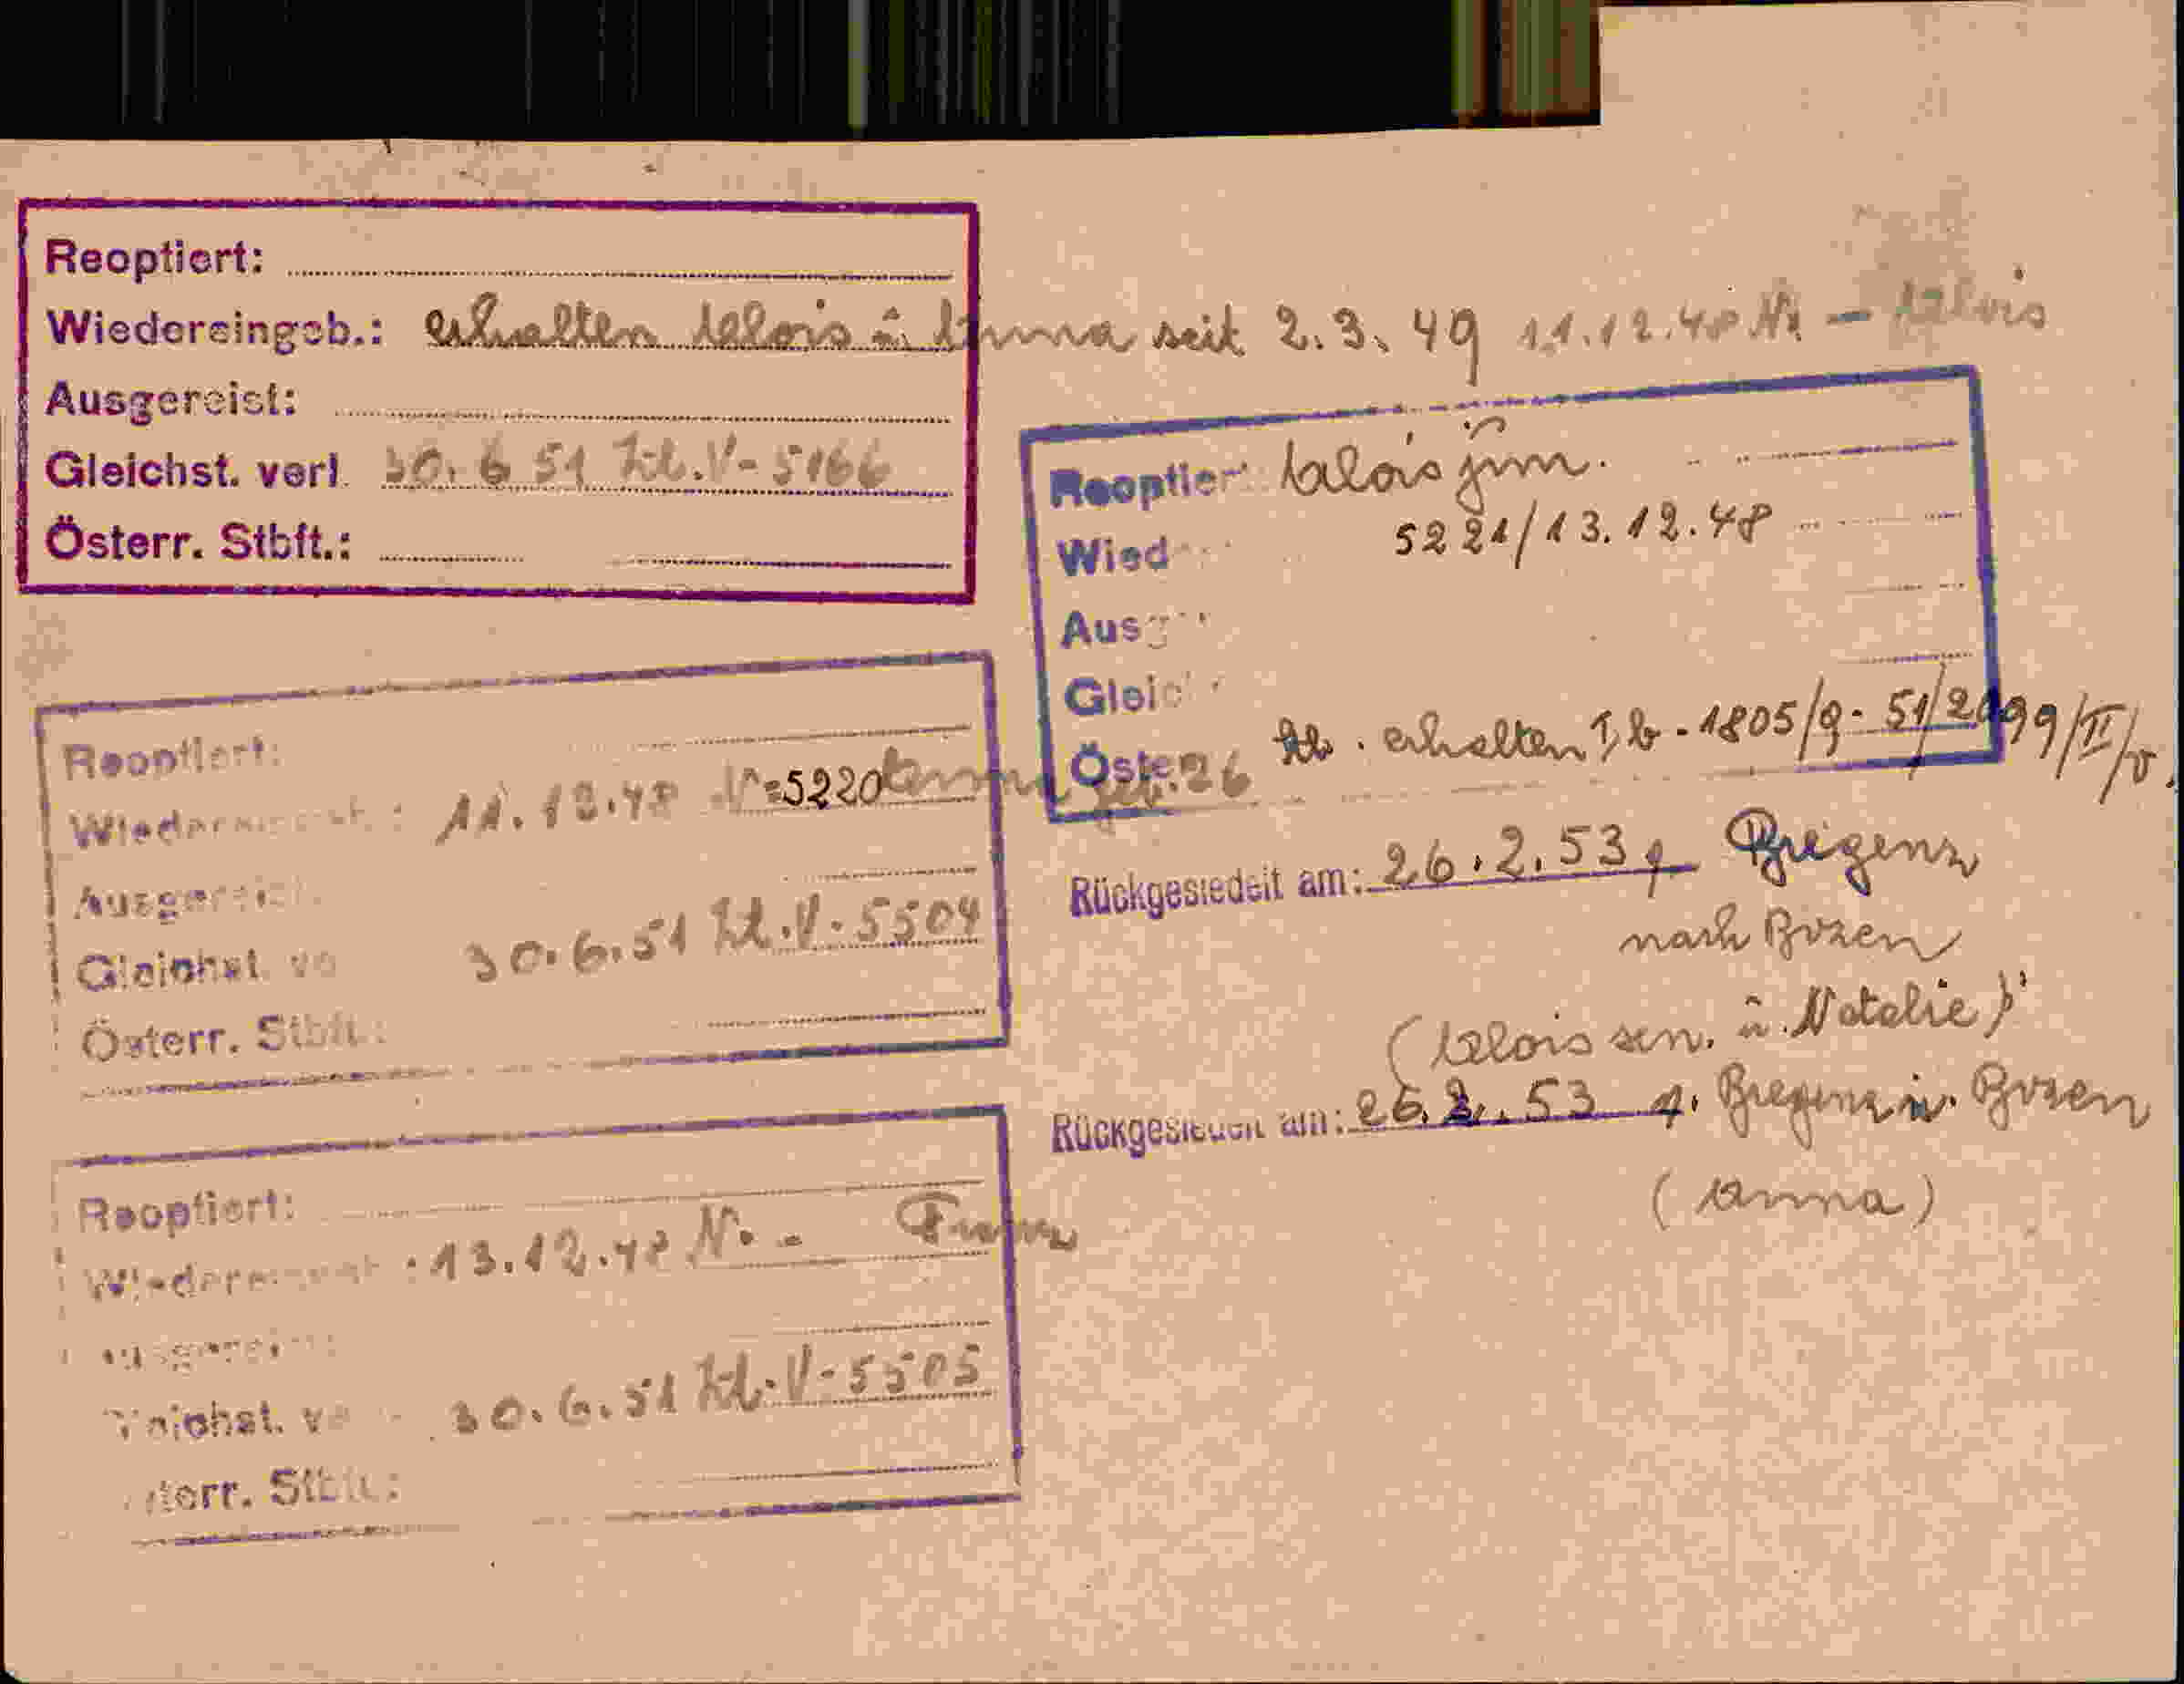 Reoptiert:
Wiedereingeb.: erhalten Alois u. Anna seit 2.3.49 11.12.48 Nr - Alois
Ausgereist:
Gleichst. verl. 30.6.51 Zl.V-5166
Österr. Stbft.:
Reoptiert: Alois jun.
5221/13.12.48
Wied
Ausg
Gleic
Stb. erhalten I,b-1805/9-51/2099/II/V.
Öster
Reoptiert:
Wiedereingeb.: 11.12.48 Nr 5220 Anna geb. 26
Ausgereist
Gleichst. ve 30.6.51 Zl.V-5504
Österr. Stbft.:
Rückgesiedelt am: 26.2.53 v. Bregenz
nach Bozen
(Alois sen. u. Natalie)
Rückgesiedelt am: 26.2.53 v. Bregenz n. Bozen
(Anna)
Reoptiert:
Wiedereingeb.: 13.12.48 Nr - Franz
Ausgereist
Gleichst. ve 30.6.51 Zl.V-5505
Österr. Stbft.: